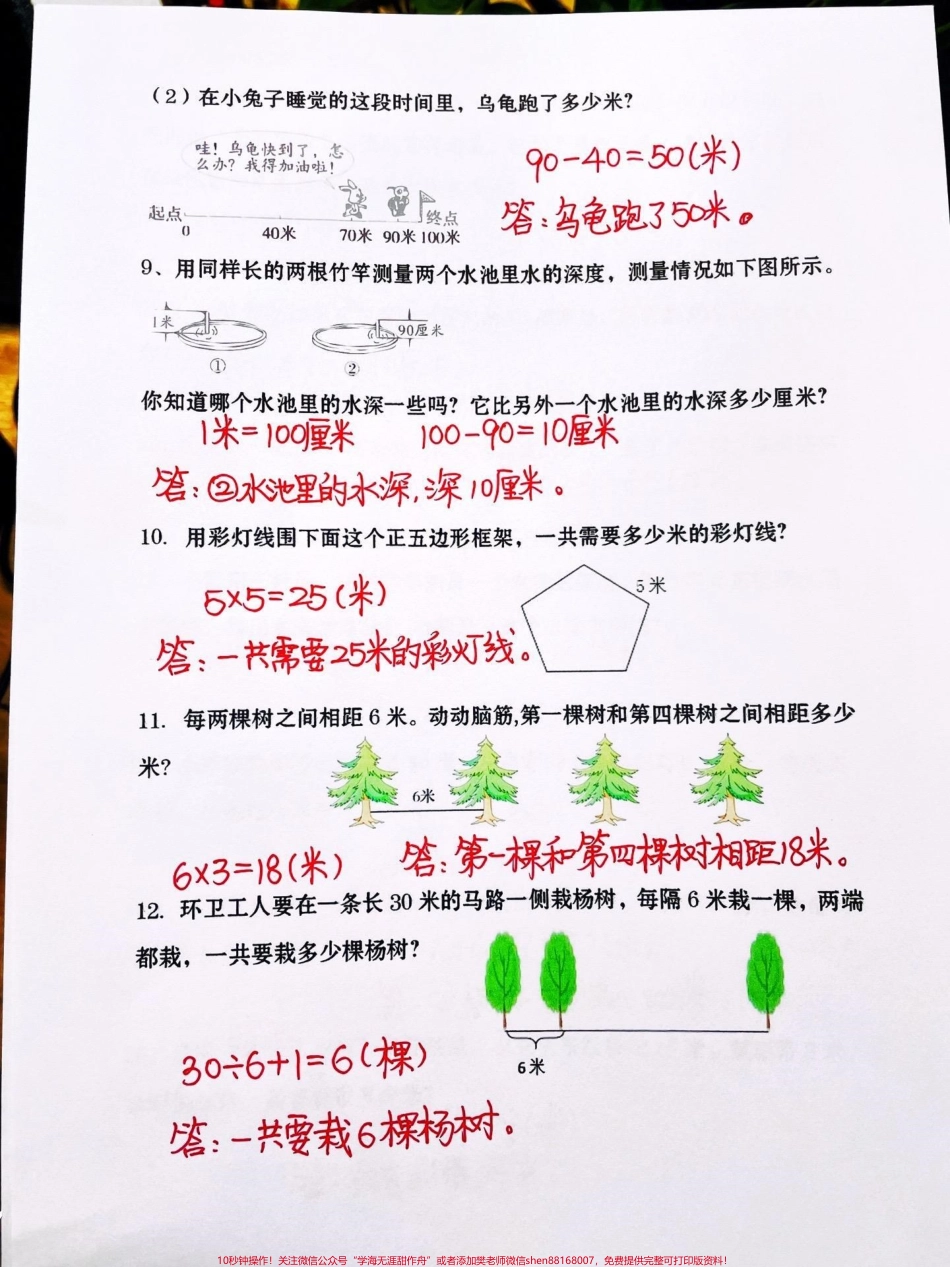 （2）在小兔子睡觉的这段时间里，乌龟跑了多少米？
哇！乌龟快到了，怎
么办？我得加油啦！
90-40=50(米)
答：乌龟跑了50米。
起点
终点
0 40米 70米 90米 100米
9、用同样长的两根竹竿测量两个水池里水的深度，测量情况如下图所示。
1米
90厘米
① ②
你知道哪个水池里的水深一些吗？它比另外一个水池里的水深多少厘米？
1米=100厘米 100-90=10厘米
答：②水池里的水深，深10厘米。
10. 用彩灯线围下面这个正五边形框架，一共需要多少米的彩灯线？
5米
5×5=25(米)
答：一共需要25米的彩灯线。
11. 每两棵树之间相距 6 米。动动脑筋,第一棵树和第四棵树之间相距多少
米？
6米
6×3=18(米)
答：第一棵和第四棵树相距18米。
12. 环卫工人要在一条长 30 米的马路一侧栽杨树，每隔 6 米栽一棵，两端
都栽，一共要栽多少棵杨树？
6米
30÷6+1=6(棵)
答：一共要栽6棵杨树。
10秒钟操作！关注微信公众号“学海无涯甜作舟”或者添加樊老师微信shen88168007，免费提供完整可打印版资料！